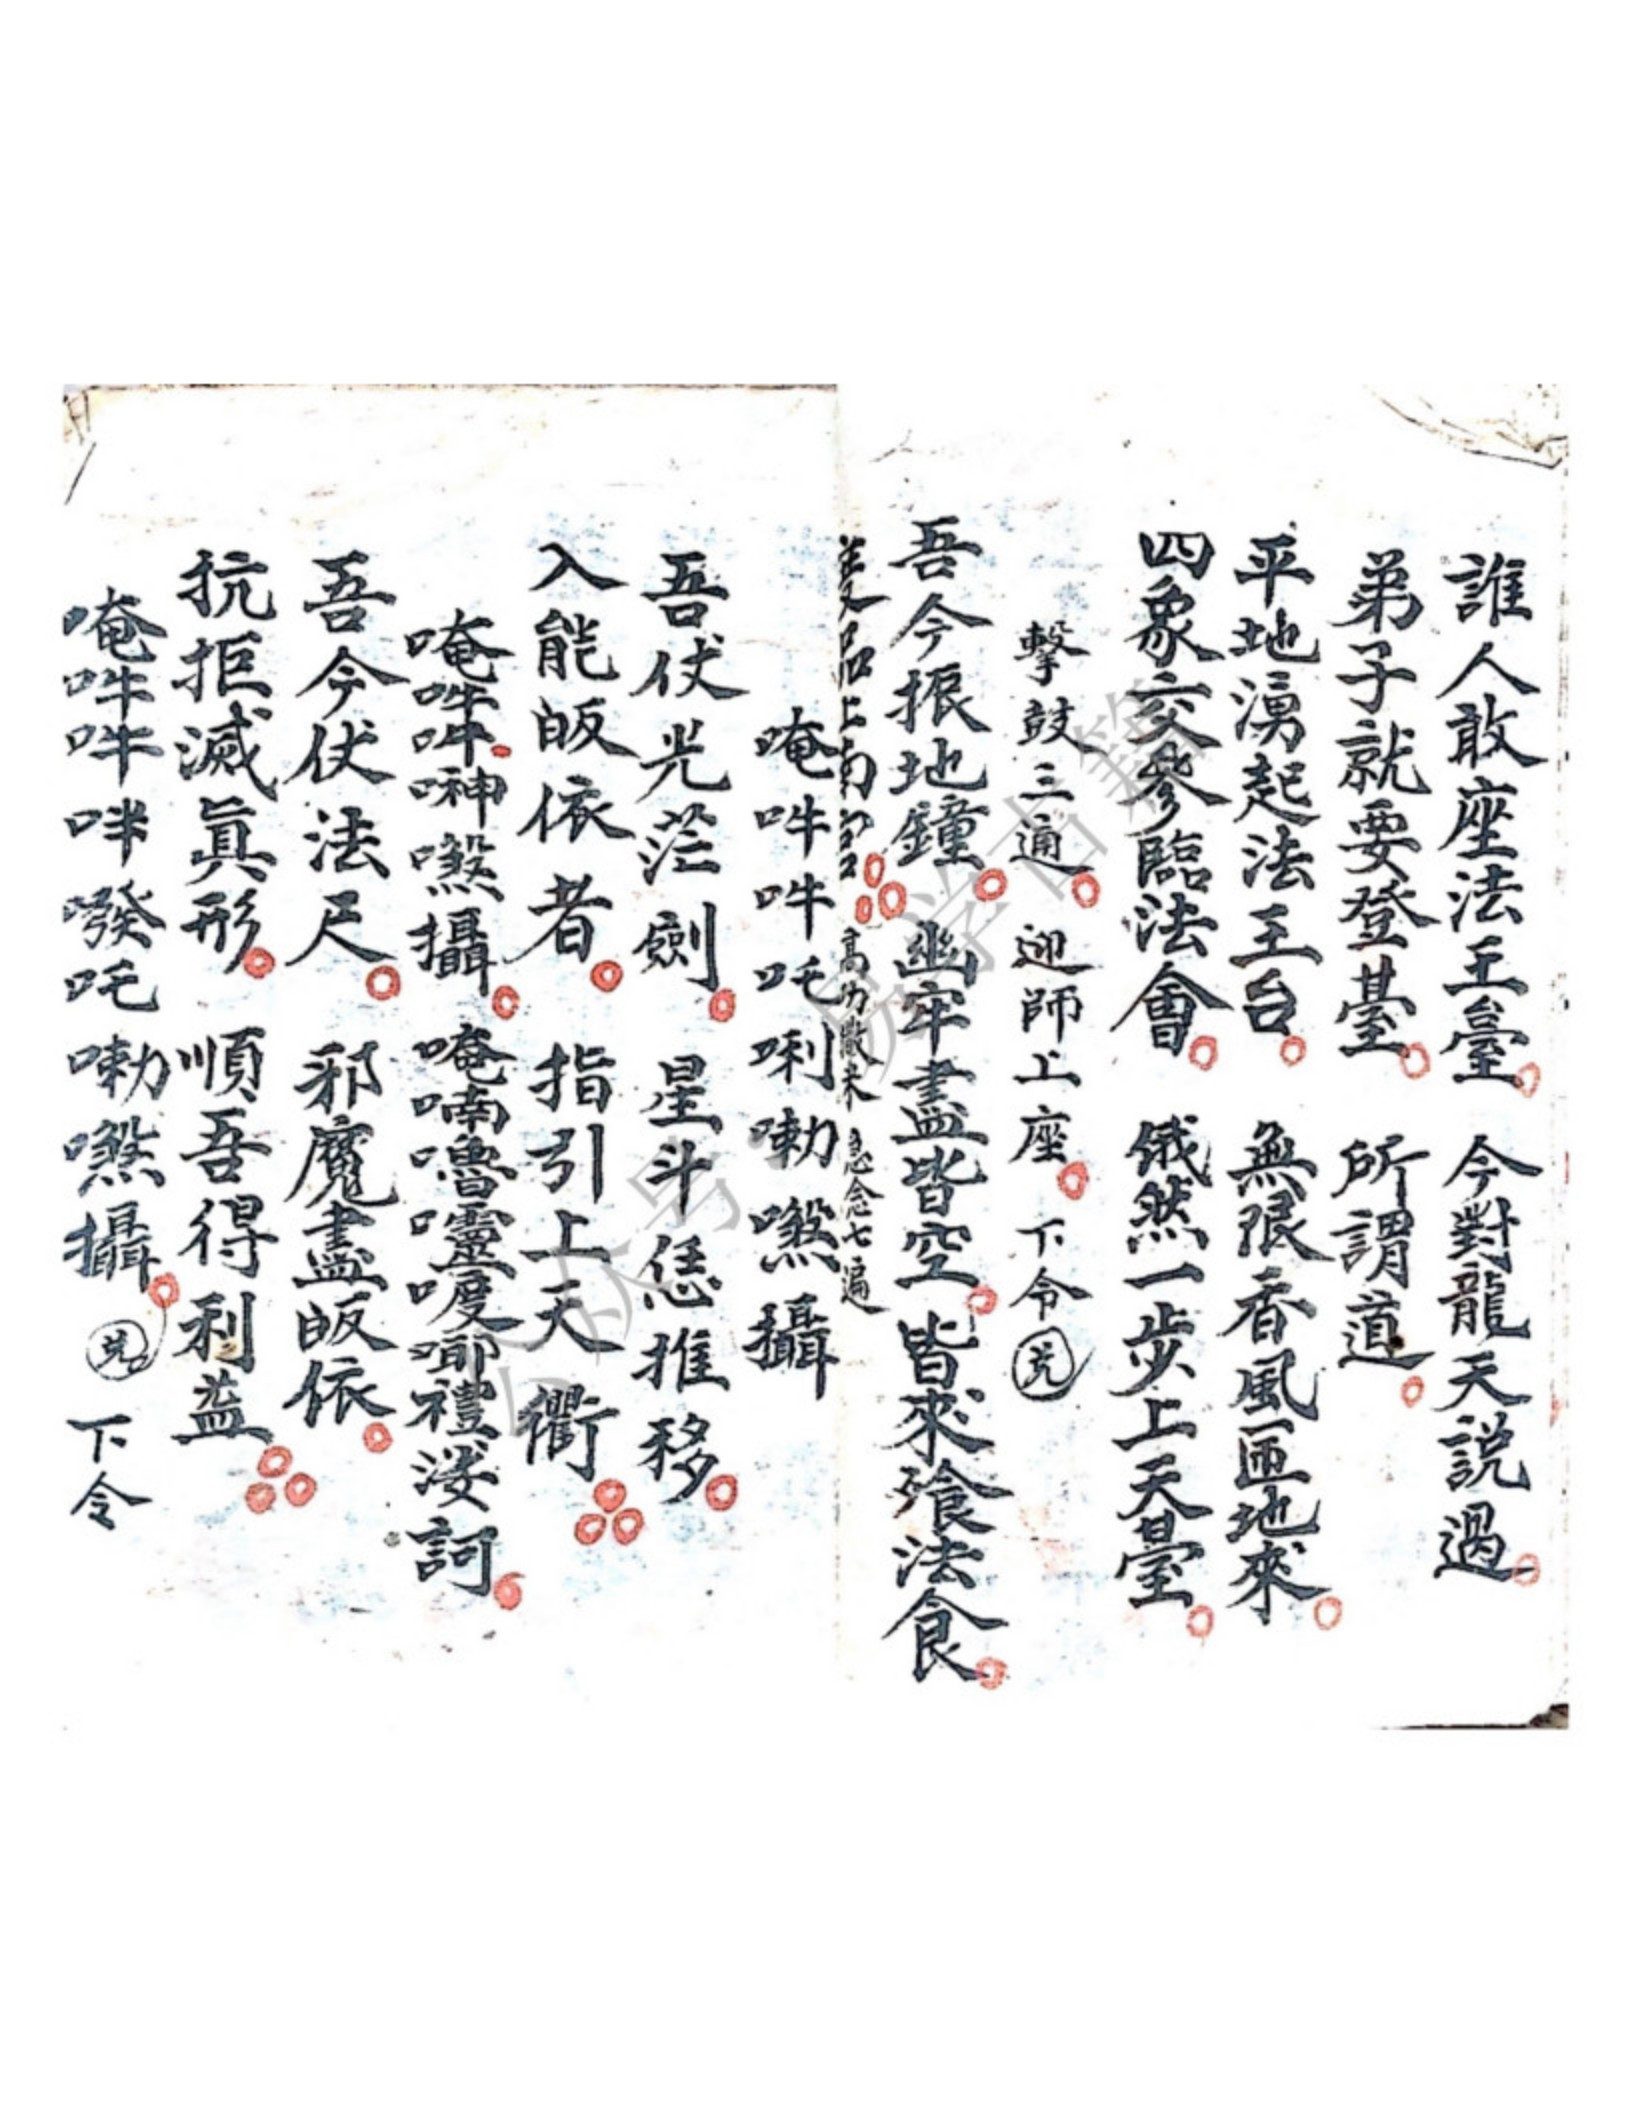 誰人敢座法王臺 今對龍天説過
弟子就要登臺 所謂道
平地湧起法王台 無限香風匝地來
四象交參臨法會 俄然一步上天臺
擊鼓三通 迎師上座 下令
吾今振地鐘 幽牢盡皆空 皆來飡法食
高功 急念七遍
唵吽吽吒唎嘞噀攝
吾伏光茫劍 星斗恁推移
入能皈依者 指引上天衢
唵吽吽 噀攝 唵喃嚕 㗶啷禮娑訶
吾今伏法尺 邪魔盡皈依
抗拒滅真形 順吾得利益
唵吽吽 吒嘞 攝 下令
公众号·易学古籍